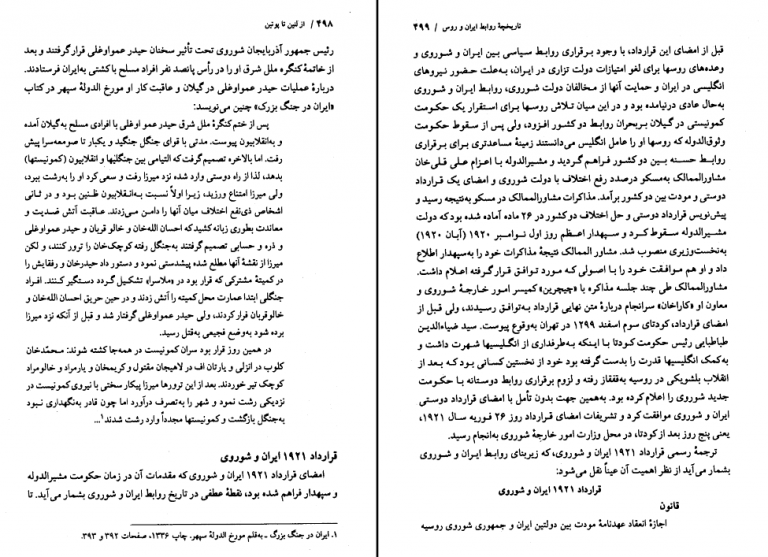 ۴۹۸ / از لنین تا پوتین
رئیس جمهور آذربایجان شوروی تحت تأثیر سخنان حیدر عمواوغلی قرار گرفتند و بعد
از خاتمهٔ کنگره ملل شرق او را در رأس پانصد نفر افراد مسلح با کشتی به ایران فرستادند.
دربارهٔ عملیات حیدر عمواوغلی در گیلان و عاقبت کار او مورخ الدولهٔ سپهر در کتاب
«ایران در جنگ بزرگ» چنین می‌نویسد:
پس از ختم کنگرهٔ ملل شرق حیدر عمو اوغلی با افرادی مسلح به گیلان آمده
و به انقلابیون پیوست. مدتی با قوای جنگل جنگید و یکبار تا صومعه‌سرا پیش
رفت. اما بالاخره تصمیم گرفت که التیامی بین جنگلیها و انقلابیون (کمونیستها)
بدهد، لذا از راه دوستی وارد شده نزد میرزا رفت و سعی کرد او را به رشت ببرد،
ولی میرزا امتناع ورزید، زیرا اولاً نسبت به انقلابیون ظنین بود و در ثانی
اشخاص ذی‌نفع اختلاف میان آنها را دامن می‌زدند. عاقبت آتش ضدیت و
معاندت بطوری زبانه کشید که احسان الله‌خان و خالو قربان و حیدر عمواوغلی
و ذره و حسابی تصمیم گرفتند به جنگل رفته کوچک‌خان را ترور کنند، و لکن
میرزا از نقشهٔ آنها مطلع شده پیشدستی نمود و دستور داد حیدرخان و رفقایش را
در کمیتهٔ مشترکی که قرار بود در «ملاسرا» تشکیل گردد دستگیر کنند. افراد
جنگلی ابتدا عمارت محل کمیته را آتش زدند و در حین حریق احسان الله‌خان و
خالوقربان فرار کردند، ولی حیدر عمواوغلی گرفتار شد و قبل از آنکه نزد میرزا
برده شود به وضع فجیعی به قتل رسید.
در همین روز قرار بود سران کمونیست در همه‌جا کشته شوند: محمدخان
کلوب در انزلی و پارتان اف در لاهیجان مقتول و کریمخان و یارمراد و خالومراد
کوچک تیر خوردند. بعد از این ترورها میرزا پیکار سختی با نیروی کمونیست در
نزدیکی رشت نمود و شهر را به تصرف درآورد اما چون قادر به نگهداری نبود
به جنگل بازگشت و کمونیستها مجدداً وارد رشت شدند۱...
قرارداد ۱۹۲۱ ایران و شوروی
امضای قرارداد ۱۹۲۱ ایران و شوروی که مقدمات آن در زمان حکومت مشیرالدوله
و سپهدار فراهم شده بود، نقطهٔ عطفی در تاریخ روابط ایران و شوروی بشمار می‌آید. تا
۱. ایران در جنگ بزرگ ـ به‌قلم مورخ الدولهٔ سپهر. چاپ ۱۳۳۶، صفحات ۳۹۲ و ۳۹۳.
تاریخچهٔ روابط ایران و روس / ۴۹۹
قبل از امضای این قرارداد، با وجود برقراری روابط سیاسی بین ایران و شوروی و
وعده‌های روسها برای لغو امتیازات دولت تزاری در ایران، به علت حضور نیروهای
انگلیسی در ایران و حمایت آنها از مخالفان دولت شوروی، روابط ایران و شوروی
به حال عادی درنیامده بود و در این میان تلاش روسها برای استقرار یک حکومت
کمونیستی در گیلان بر بحران روابط دو کشور افزود، ولی پس از سقوط حکومت
وثوق‌الدوله که روسها او را عامل انگلیس می‌دانستند زمینهٔ مساعدتری برای برقراری
روابط حسنه بین دو کشور فراهم گردید و مشیرالدوله با اعزام علی قلی‌خان
مشاورالممالک به مسکو درصدد رفع اختلاف با دولت شوروی و امضای یک قرارداد
دوستی و مودت بین دو کشور برآمد. مذاکرات مشاورالممالک در مسکو به نتیجه رسید و
پیش‌نویس قرارداد دوستی و حل اختلاف دو کشور در ۲۶ ماده آماده شده بود که دولت
مشیرالدوله سقوط کرد و سپهدار اعظم روز اول نوامبر ۱۹۲۰ (آبان ۱۹۲۰)
به نخست‌وزیری منصوب شد. مشاور الممالک نتیجهٔ مذاکرات خود را به سپهدار اطلاع
داد و او هم موافقت خود را با اصولی که مورد توافق قرار گرفته اعلام داشت.
مشاورالممالک طی چند جلسه مذاکره با «چیچرین» کمیسر امور خارجهٔ شوروی و
معاون او «کاراخان» سرانجام دربارهٔ متن نهایی قرارداد به توافق رسیدند، ولی قبل از
امضای قرارداد، کودتای سوم اسفند ۱۲۹۹ در تهران به وقوع پیوست. سید ضیاءالدین
طباطبایی رئیس حکومت کودتا با اینکه به طرفداری از انگلیسیها شهرت داشت و
به کمک انگلیسیها قدرت را بدست گرفته بود خود از نخستین کسانی بود که بعد از
انقلاب بلشویکی در روسیه به قفقاز رفته و لزوم برقراری روابط دوستانه با حکومت
جدید شوروی را اعلام کرده بود. به همین جهت بدون تأمل با امضای قرارداد دوستی
ایران و شوروی موافقت کرد و تشریفات امضای قرارداد روز ۲۶ فوریه سال ۱۹۲۱،
یعنی پنج روز بعد از کودتا، در محل وزارت امور خارجهٔ شوروی به انجام رسید.
ترجمهٔ رسمی قرارداد ۱۹۲۱ ایران و شوروی، که زیربنای روابط ایران و شوروی
بشمار می‌آید از نظر اهمیت آن عیناً نقل می‌شود:
قرارداد ۱۹۲۱ ایران و شوروی
قانون
اجازهٔ انعقاد عهدنامهٔ مودت بین دولتین ایران و جمهوری شوروی روسیه